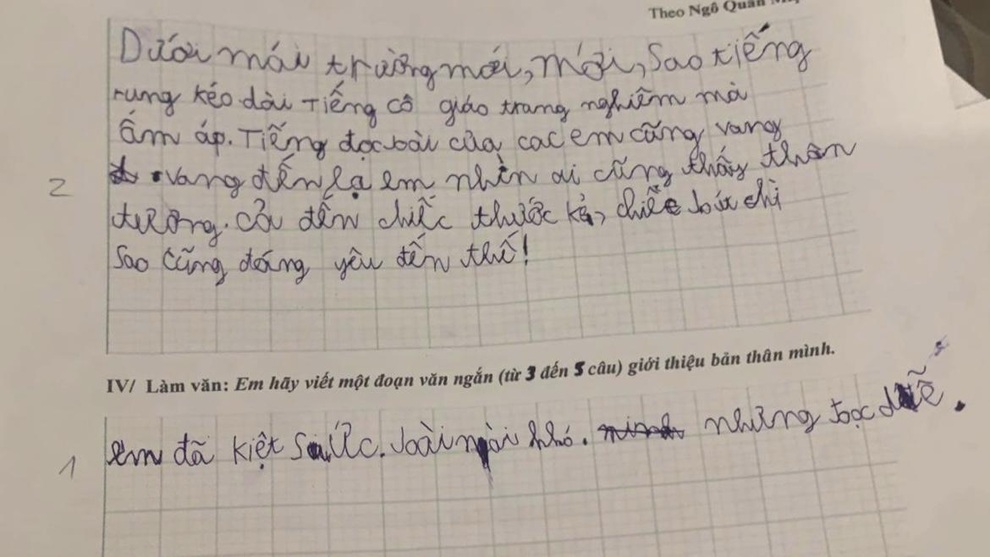 Theo Ngô Quân
Dưới mái trường mới, mới, Sao tiếng
rung kéo dài Tiếng cô giáo trang nghiêm mà
ấm áp. Tiếng đọc bài của cac em cũng vang
vang đến lạ em nhìn ai cũng thấy thân
2
tương. Cả đến chiếc thước kẻ, chiếc bút chì
Sao cũng đáng yêu đến thế!
IV/ Làm văn: Em hãy viết một đoạn văn ngắn (từ 3 đến 5 câu) giới thiệu bản thân mình.
1
em đã kiệt Sức. bài này khó. những đọc dễ.